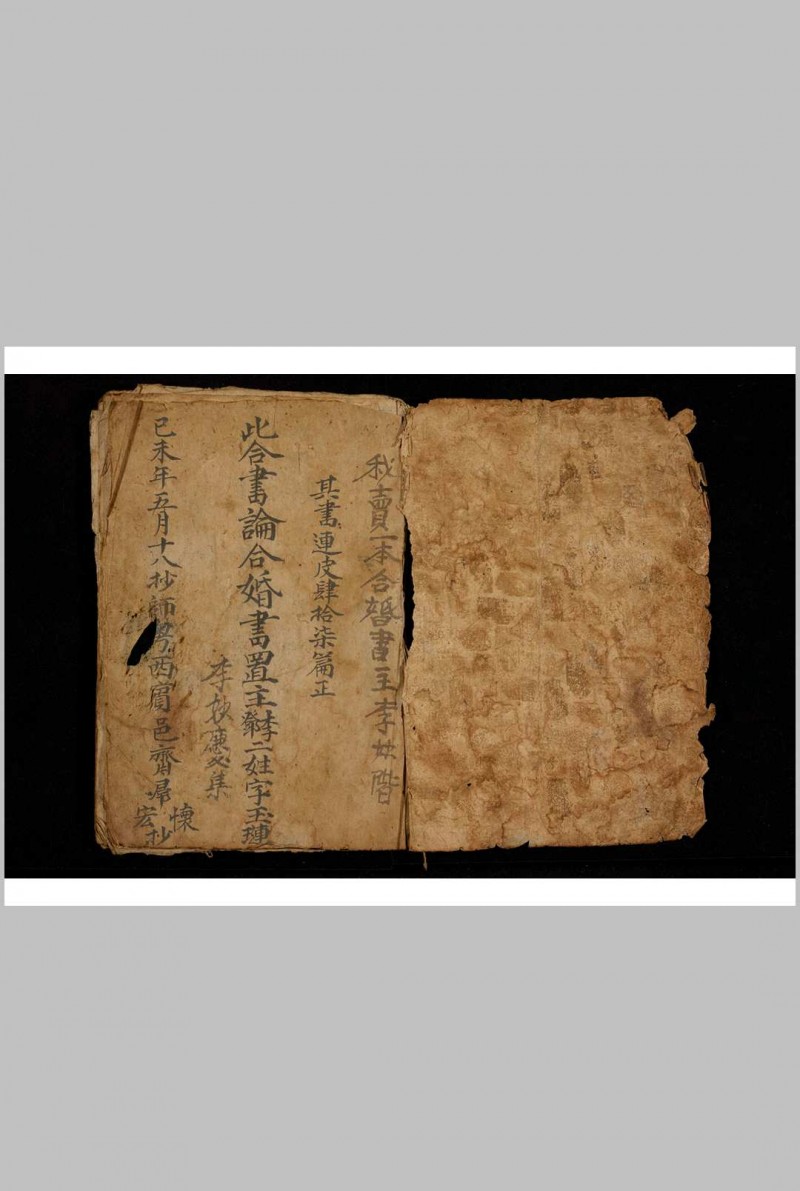 我賣一本合婚書主李
其書連皮肆拾柒篇正
此合書論合婚書置主李鄧二姓字玉璉
李 集
己未年五月十八抄師粵西賓邑齋帰懷宏抄